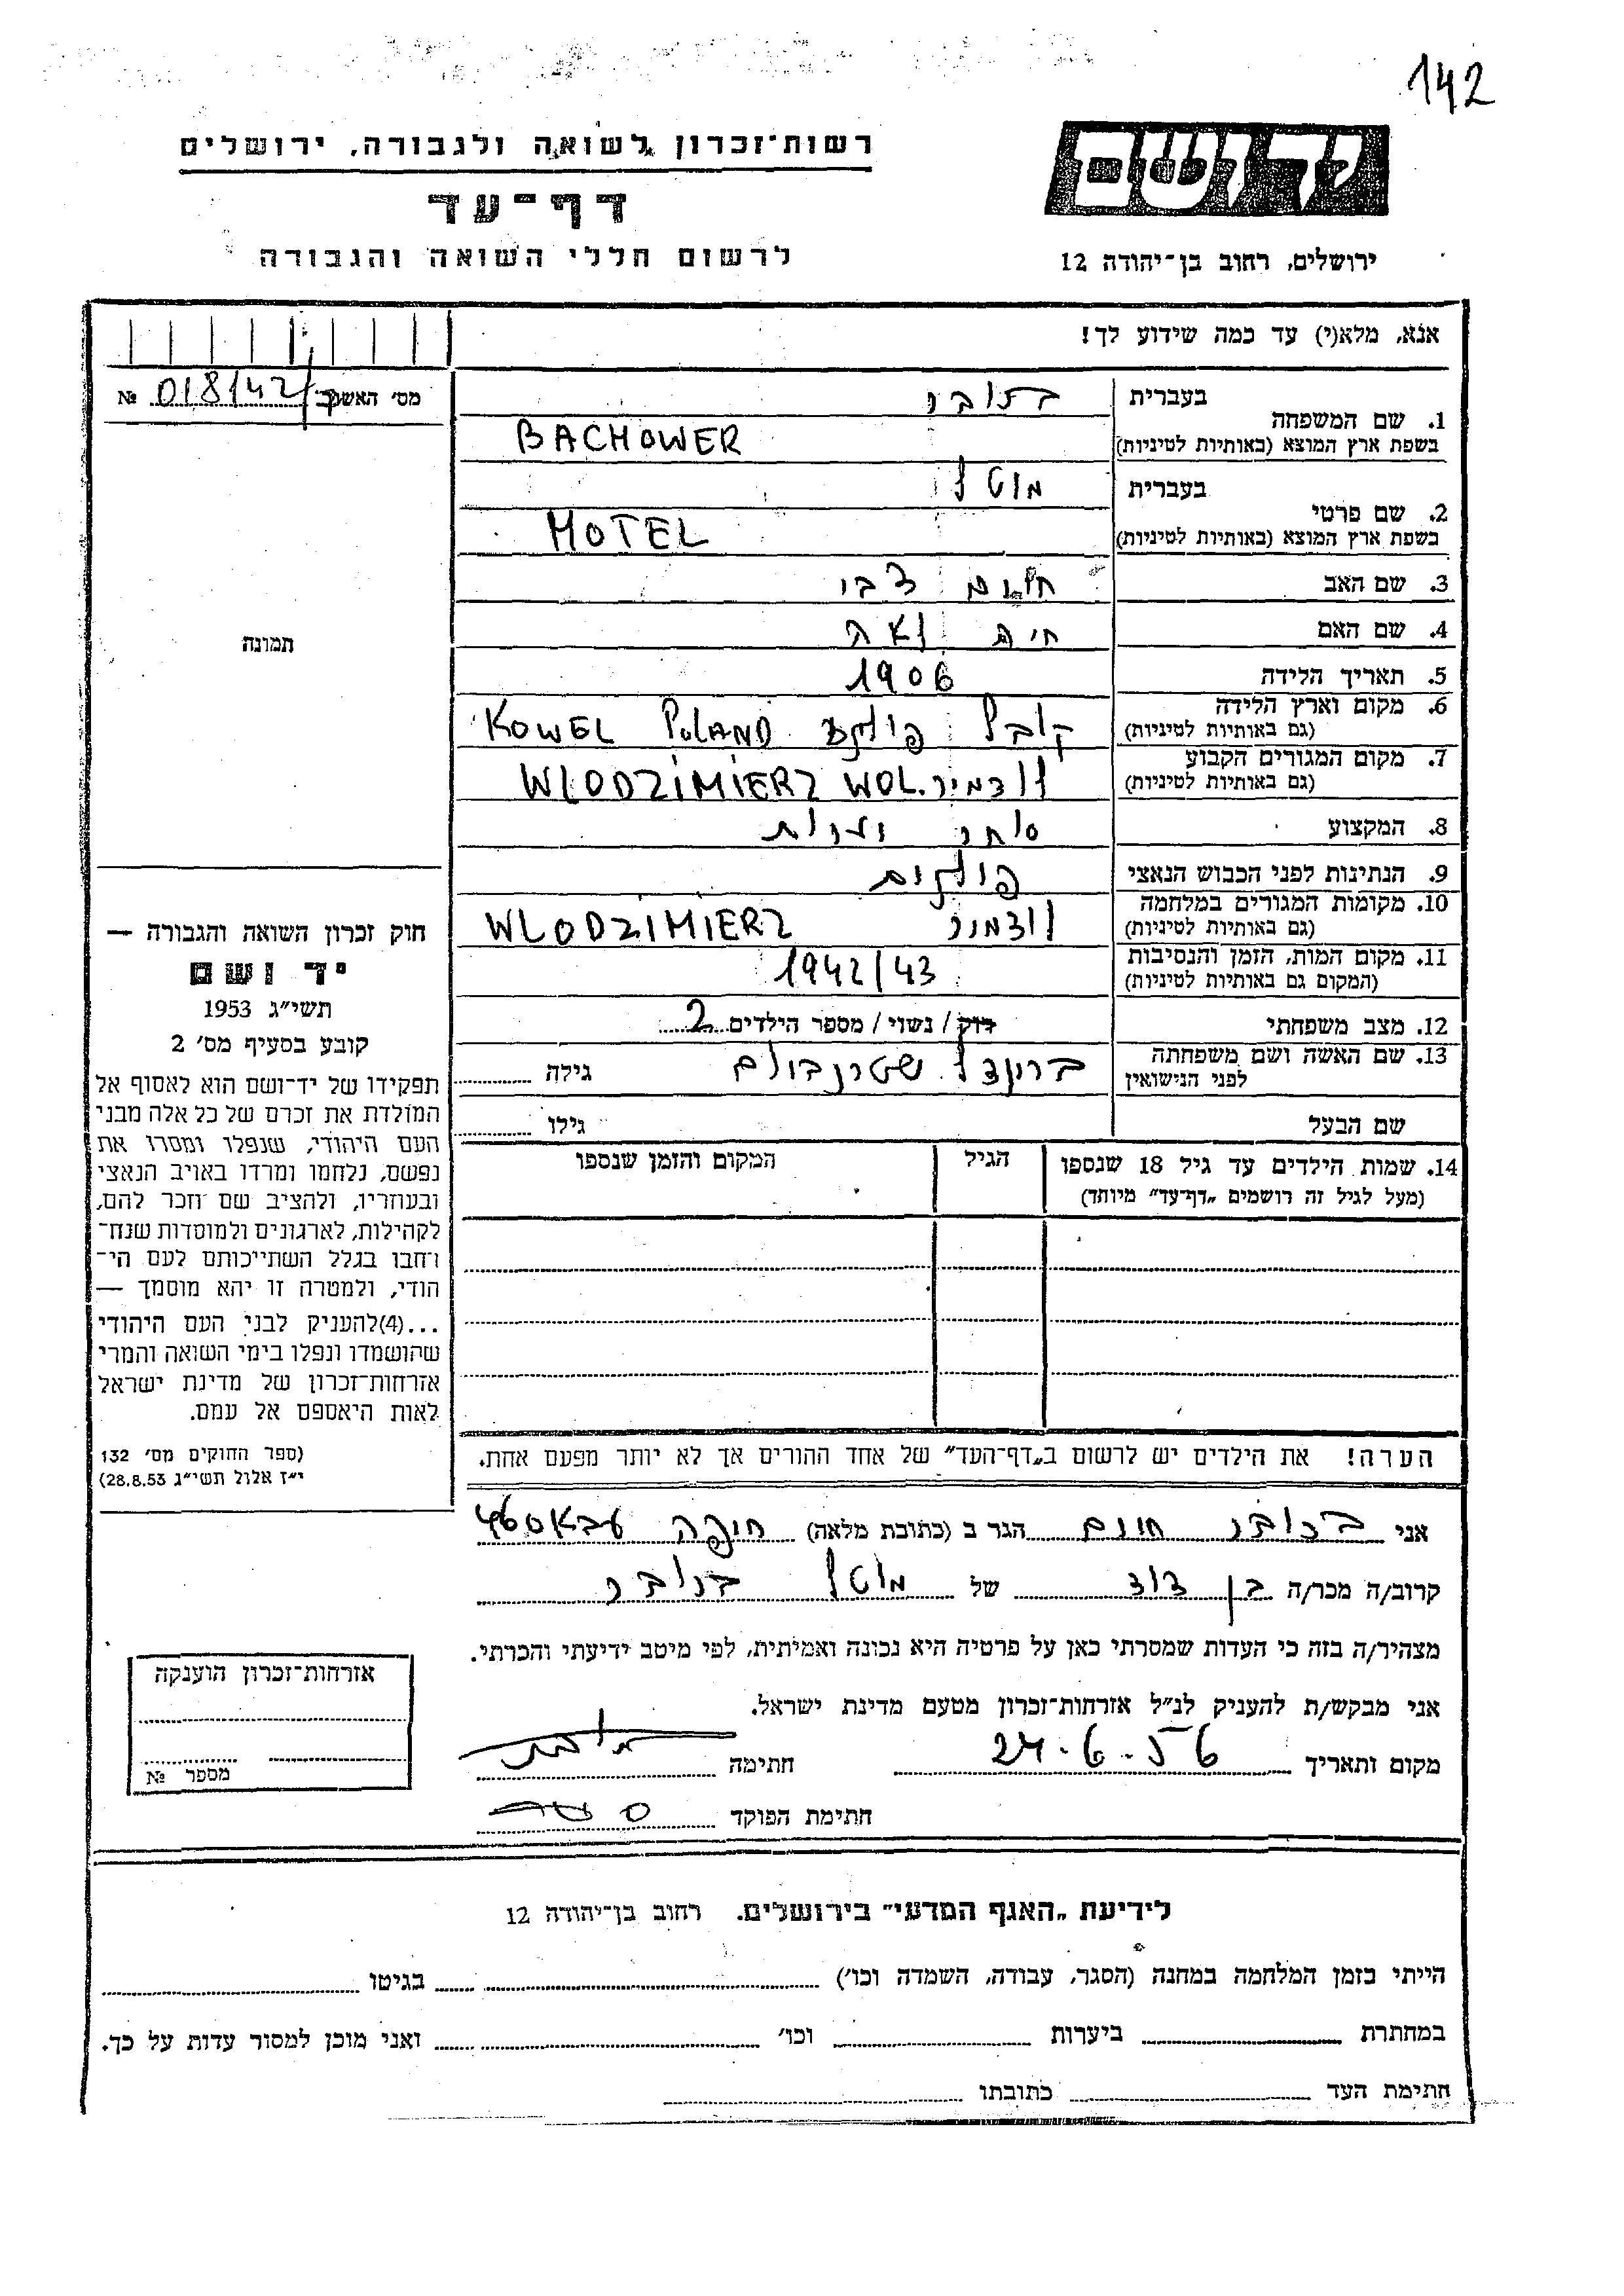 142
רשות-זכרון לשואה ולגבורה, ירושלים
דף-עד
לרשום חללי השואה והגבורה
ידושם
ירושלים, רחוב בן-יהודה 12
אנא, מלא(י) עד כמה שידוע לך!
מס׳ האשנב № 018/42/
1. שם המשפחה
בעברית
בשפת ארץ המוצא (באותיות לטיניות)
BACHOWER
2. שם פרטי
בעברית מוטל
בשפת ארץ המוצא (באותיות לטיניות)
MOTEL
3. שם האב חיים צבי
4. שם האם חיה לאה
5. תאריך הלידה 1906
6. מקום וארץ הלידה
(גם באותיות לטיניות)
קובל פולין KOWEL POLAND
7. מקום המגורים הקבוע
(גם באותיות לטיניות)
WLODZIMIERZ WOL.
8. המקצוע סוחר
9. הנתינות לפני הכבוש הנאצי
10. מקומות המגורים במלחמה
(גם באותיות לטיניות)
WLODZIMIERZ
11. מקום המות, הזמן והנסיבות
(המקום גם באותיות לטיניות)
1942/43
12. מצב משפחתי
רוק/ נשוי/ מספר הילדים 2
13. שם האשה ושם משפחתה
לפני הנישואין
ברינדל שטרנבוים גילה
שם הבעל גילו
14. שמות הילדים עד גיל 18 שנספו
(מעל לגיל זה רושמים „דף-עד״ מיוחד)
הגיל
המקום והזמן שנספו
הערה! את הילדים יש לרשום ב„דף-העד״ של אחד ההורים אך לא יותר מפעם אחת.
תמונה
חוק זכרון השואה והגבורה —
יד ושם
תשי״ג 1953
קובע בסעיף מס׳ 2
תפקידו של יד-ושם הוא לאסוף אל
המולדת את זכרם של כל אלה מבני
העם היהודי, שנפלו ומסרו את
נפשם, נלחמו ומרדו באויב הנאצי
ובעוזריו, ולהציב שם וזכר להם,
לקהילות, לארגונים ולמוסדות שנח-
רחבו בגלל השתייכותם לעם הי-
הודי, ולמטרה זו יהא מוסמך —
...(4)להעניק לבני העם היהודי
שהושמדו ונפלו בימי השואה והמרי
אזרחות-זכרון של מדינת ישראל
לאות היאספם אל עמם.
(ספר החוקים מס׳ 132
י״ז אלול תשי״ג 28.8.53)
אני חיים הגר ב (כתובת מלאה) חיפה עבאס 46
קרוב/ה מכר/ה בן דוד של מוטל
מצהיר/ה בזה כי העדות שמסרתי כאן על פרטיה היא נכונה ואמיתית, לפי מיטב ידיעתי והכרתי.
אני מבקש/ת להעניק לנ״ל אזרחות-זכרון מטעם מדינת ישראל.
מקום ותאריך 24.6.56 חתימה
חתימת הפוקד
אזרחות-זכרון הוענקה
מספר №
לידיעת „האגף המדעי״ בירושלים. רחוב בן-יהודה 12
הייתי בזמן המלחמה במחנה (הסגר, עבודה, השמדה וכו׳) בגיטו
במחתרת ביערות וכו׳ ואני מוכן למסור עדות על כך.
חתימת העד כתובתו